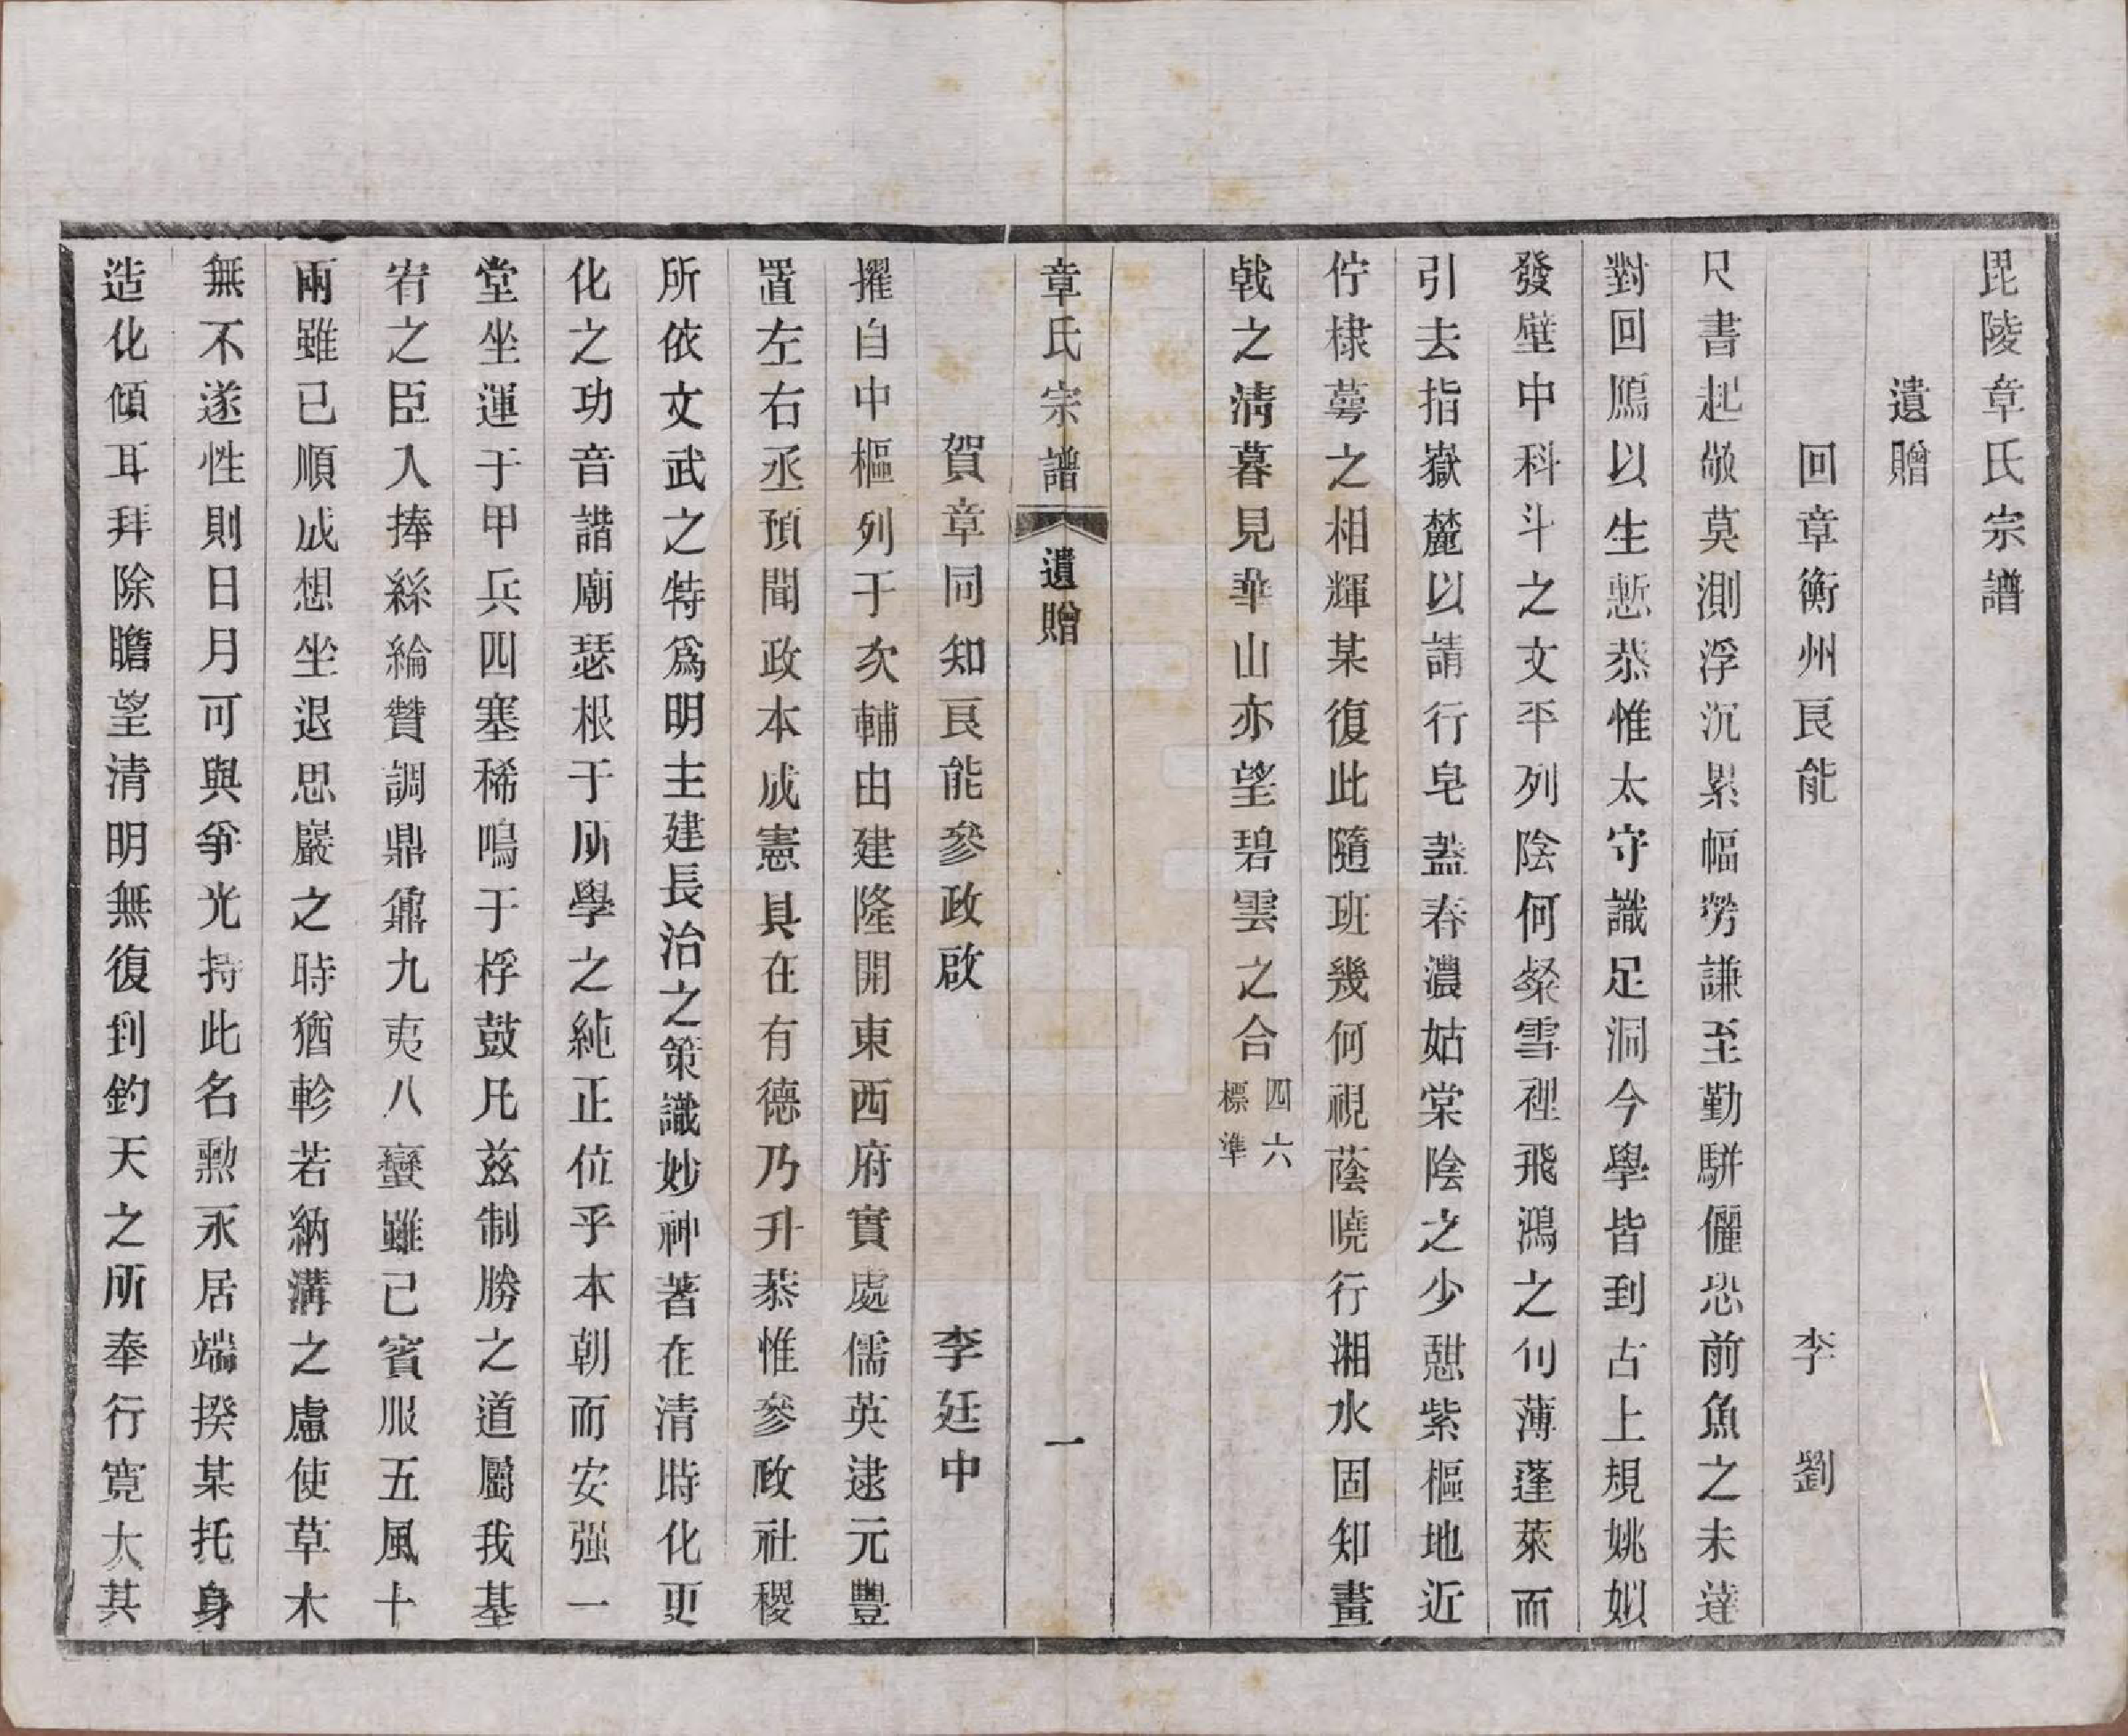 毘陵章氏宗譜
遺贈
回章衡州良能 李劉
尺書起敬莫測浮沉累幅勞謙至勤駢儷恐前魚之未達
對回鴈以生慙恭惟太守識足洞今學皆到古上規姚姒
發壁中科斗之文平列陰何粲雪裡飛鴻之句薄蓬萊而
引去指嶽麓以請行皂葢春濃姑棠陰之少憇紫樞地近
佇棣萼之相輝某復此隨班幾何視蔭曉行湘水固知畫
戟之淸暮見華山亦望碧雲之合四六標準
章氏宗譜 遺贈 一
賀章同知良能參政啟 李廷中
擢自中樞列于次輔由建隆開東西府實處儒英逮元豐
置左右丞預聞政本成憲具在有德乃升恭惟參政社稷
所依文武之特爲明主建長治之策識妙神蓍在清時化更
化之功音諧廟瑟根于所學之純正位乎本朝而安强一
堂坐運于甲兵四塞稀鳴于桴鼓凡兹制勝之道屬我基
宥之臣入捧絲綸贊調鼎鼐九夷八蠻雖已賓服五風十
兩雖已順成想坐退思巖之時猶軫若納溝之慮使草木
無不遂性則日月可與爭光持此名勲永居端揆某托身
造化傾耳拜除瞻望清明無復到釣天之所奉行寛大其